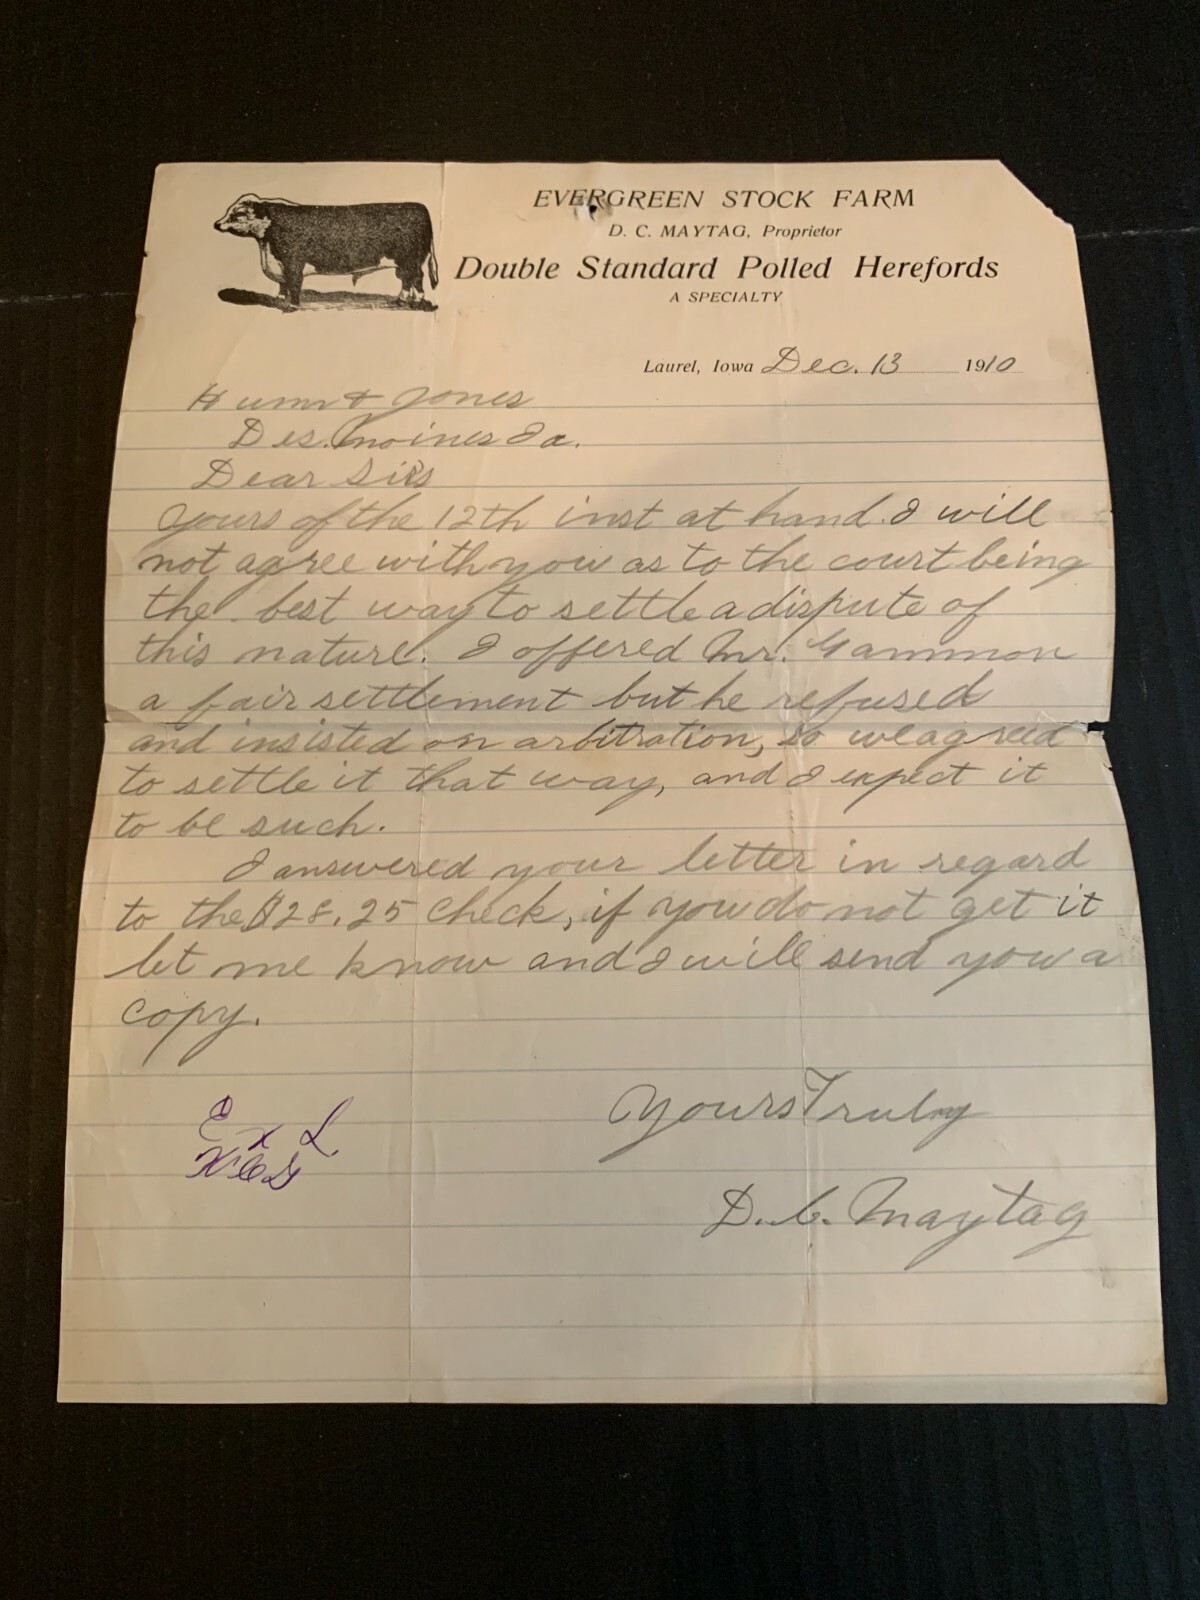 EVERGREEN STOCK FARM
D. C. MAYTAG, Proprietor
Double Standard Polled Herefords
A SPECIALTY
Laurel, Iowa Dec. 13 1910
& Jones
Des. Moines Ia.
Dear Sirs
Yours of the 12th inst at hand. I will
not agree with you as to the court being
the best way to settle a dispute of
this nature. I offered Mr. Gammon
a fair settlement but he refused
and insisted on arbitration, so we agreed
to settle it that way, and I expect it
to be such.
I answered your letter in regard
to the $28.25 check, if you do not get it
let me know and I will send you a
copy.
Yours Truly
D. C. Maytag
Ex L.